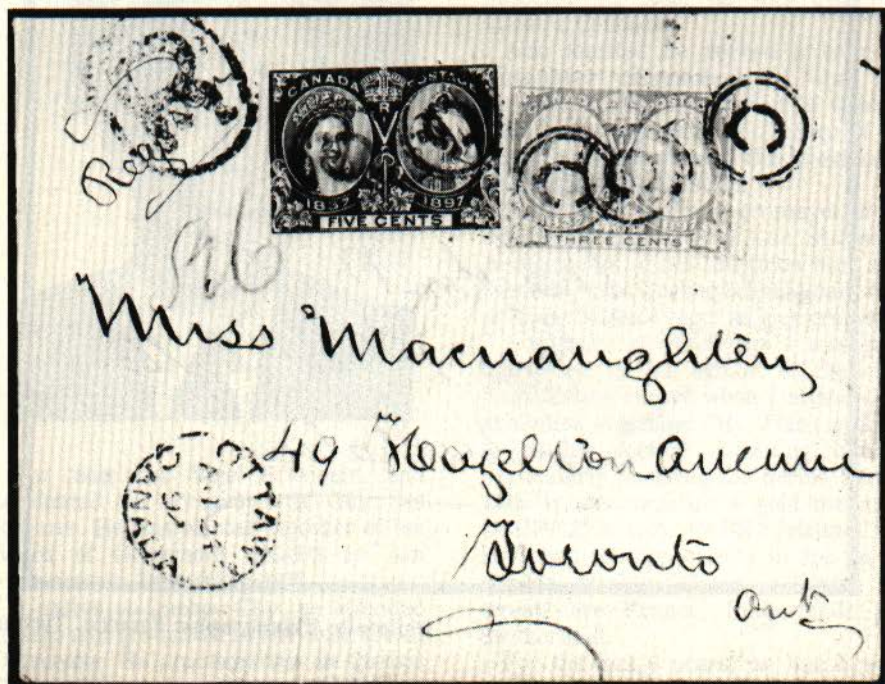 Reg
CANADA POSTAGE
V R
1837 1897
FIVE CENTS
CANADA POSTAGE
THREE CENTS
C C C
Miss Macnaughten
49 Hazelton Avenue
Toronto
Ont
OTTAWA
CANADA